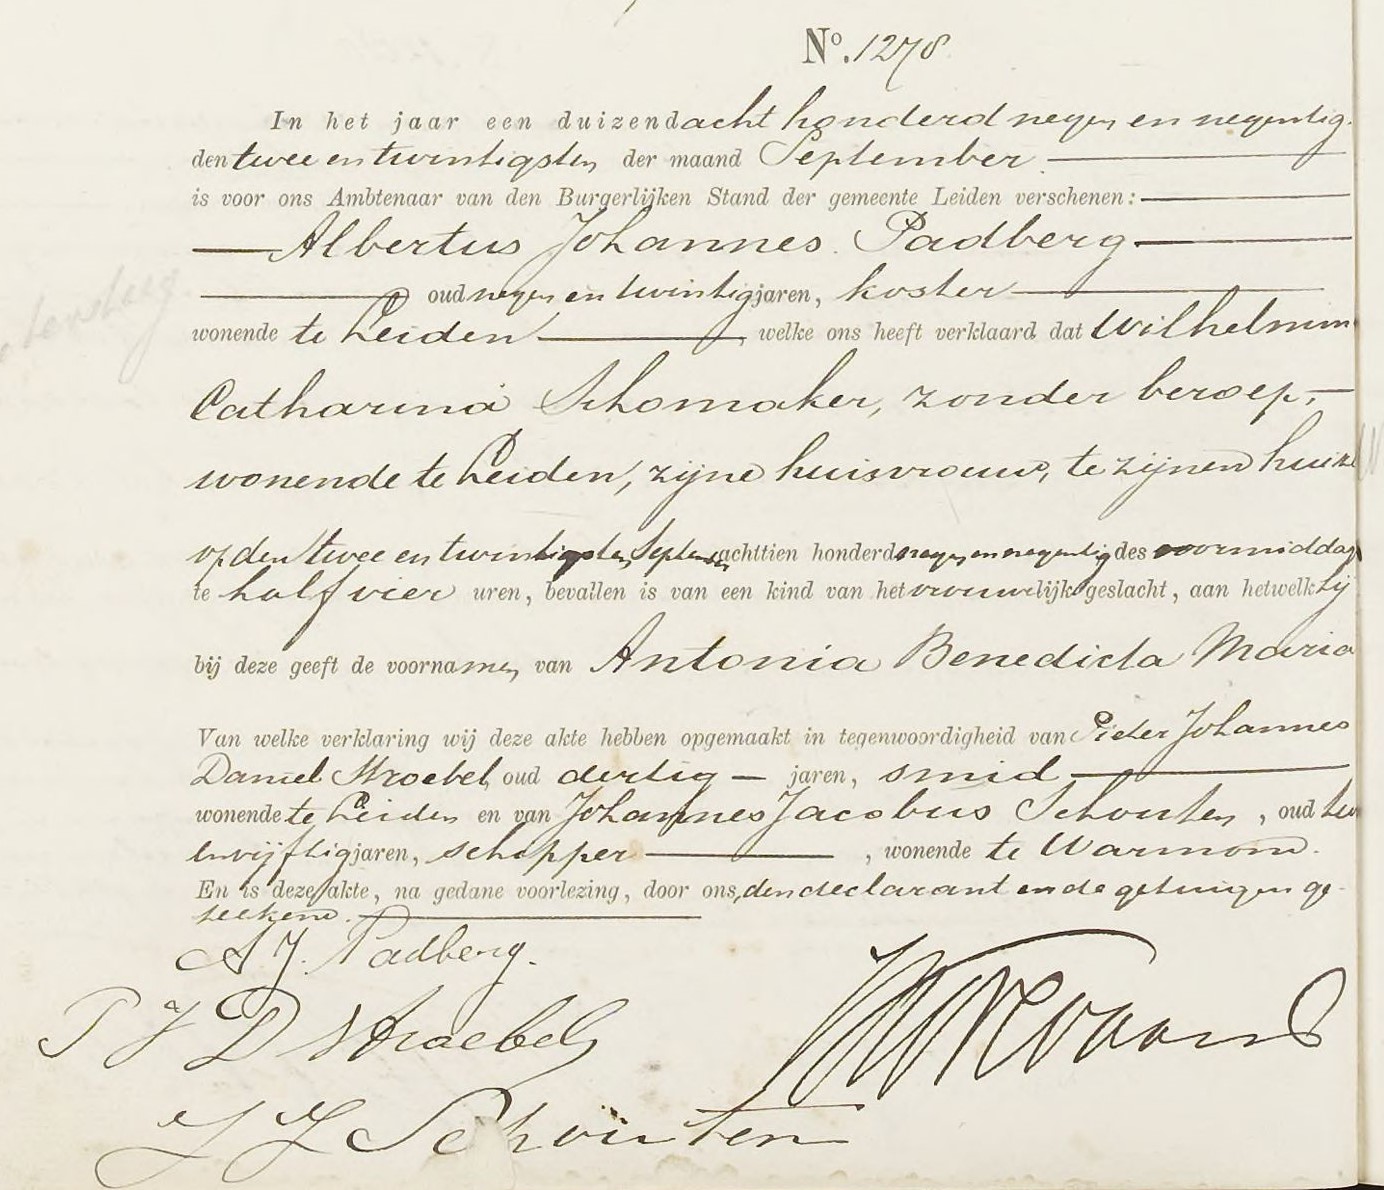 No. 1278
In het jaar een duizend acht honderd negen en negentig.
den twee en twintigsten der maand September.
is voor ons Ambtenaar van den Burgerlijken Stand der gemeente Leiden verschenen:
Albertus Johannes Padberg
oud negen en twintig jaren, koster
wonende te Leiden, welke ons heeft verklaard dat Wilhelmin
Catharina Schomaker, zonder beroep,
wonende te Leiden, zijne huisvrouw, te zijnen huize
op den twee en twintigsten September achttien honderd negen en negentig des voormiddags
te half vier uren, bevallen is van een kind van het vrouwelijk geslacht, aan hetwelk hij
bij deze geeft de voornamen van Antonia Benedicta Maria
Van welke verklaring wij deze akte hebben opgemaakt in tegenwoordigheid van Pieter Johannes
Daniel Stroebel, oud dertig jaren, smid
wonende te Leiden en van Johannes Jacobus Schouten, oud twee
en vijftig jaren, schipper, wonende te Warmond.
En is deze akte, na gedane voorlezing, door ons, den declarant en de getuigen ge-
teekend.
A. J. Padberg.
P J D Stroebel
J J Schouten